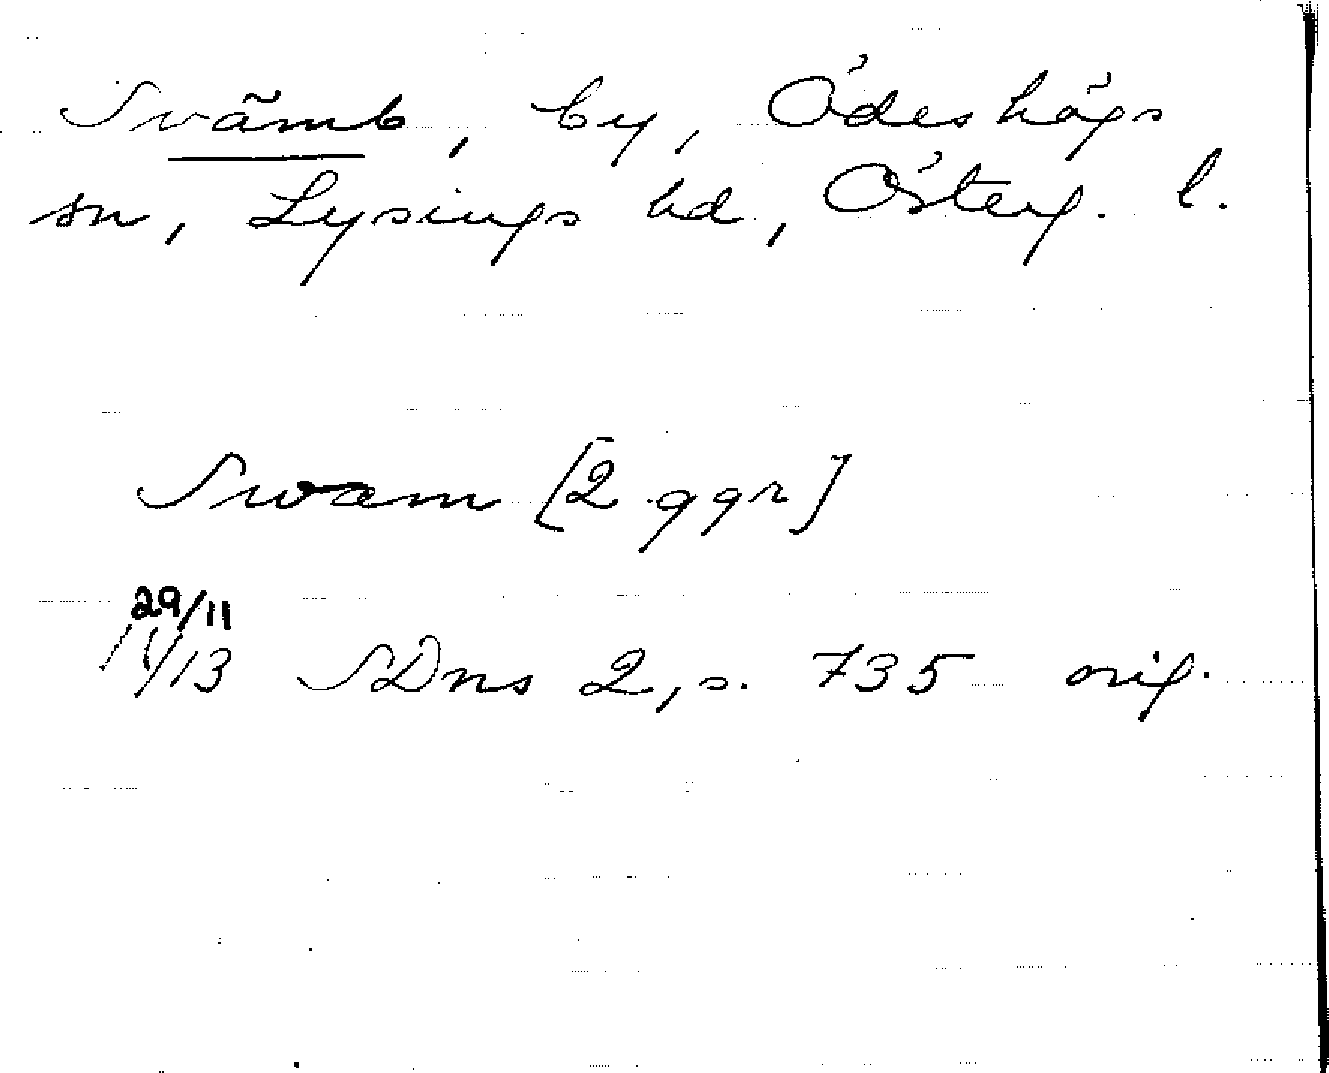 Svämb, by, Ödeshögs
sn, Lysings hd, Österg. l.
Swem [2 ggr]
29/11
1413 SDns 2, s. 735 orig.